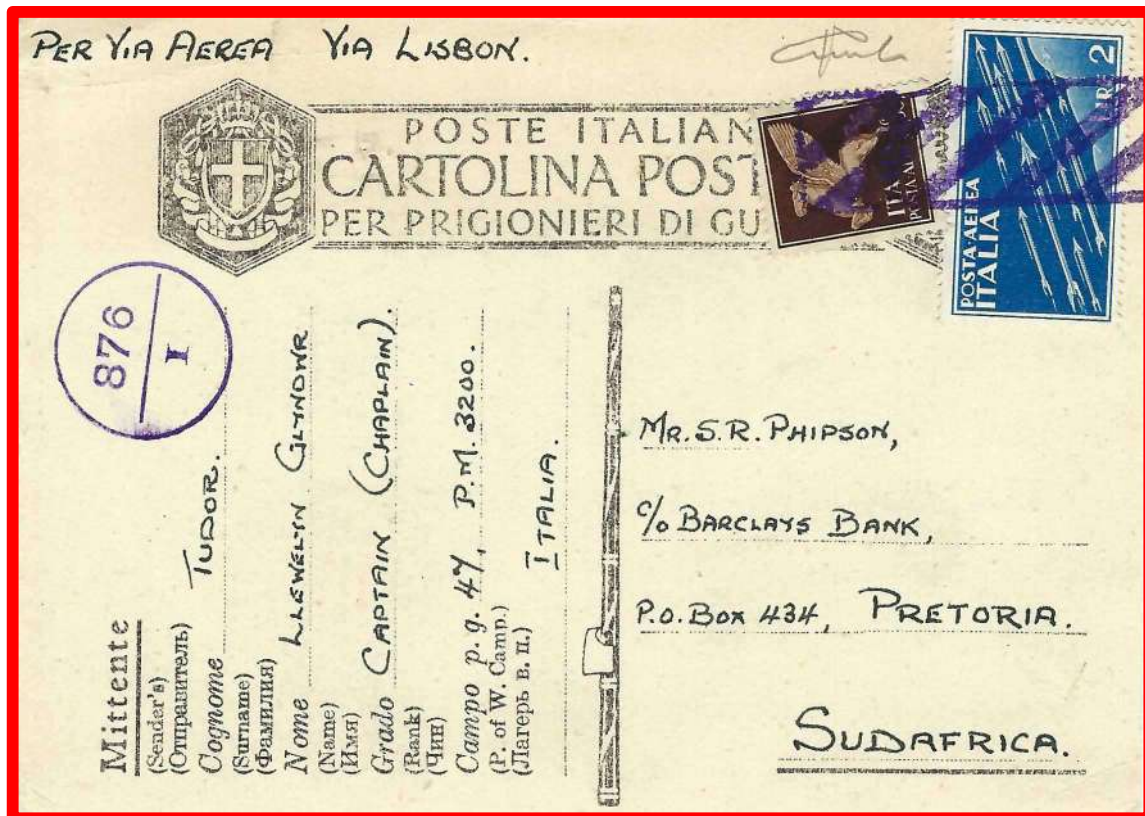 PER VIA AEREA VIA LISBON.
POSTE ITALIAN
CARTOLINA POST
PER PRIGIONIERI DI GU
ITA
POSTA AE
LIRE 2
POSTA-AEREA
ITALIA
876
I
Mittente
(Sender's)
(Отправитель)
Cognome TUDOR.
(Surname)
(Фамилия)
Nome LLEWELYN GLYNDWR
(Name)
(Имя)
Grado CAPTAIN (CHAPLAIN).
(Rank)
(Чин)
Campo p. g. 47, P.M. 3200.
(P. of W. Camp.)
(Лагерь в. п.) ITALIA.
MR. S. R. PHIPSON,
c/o BARCLAYS BANK,
P.O. BOX 434, PRETORIA.
SUDAFRICA.